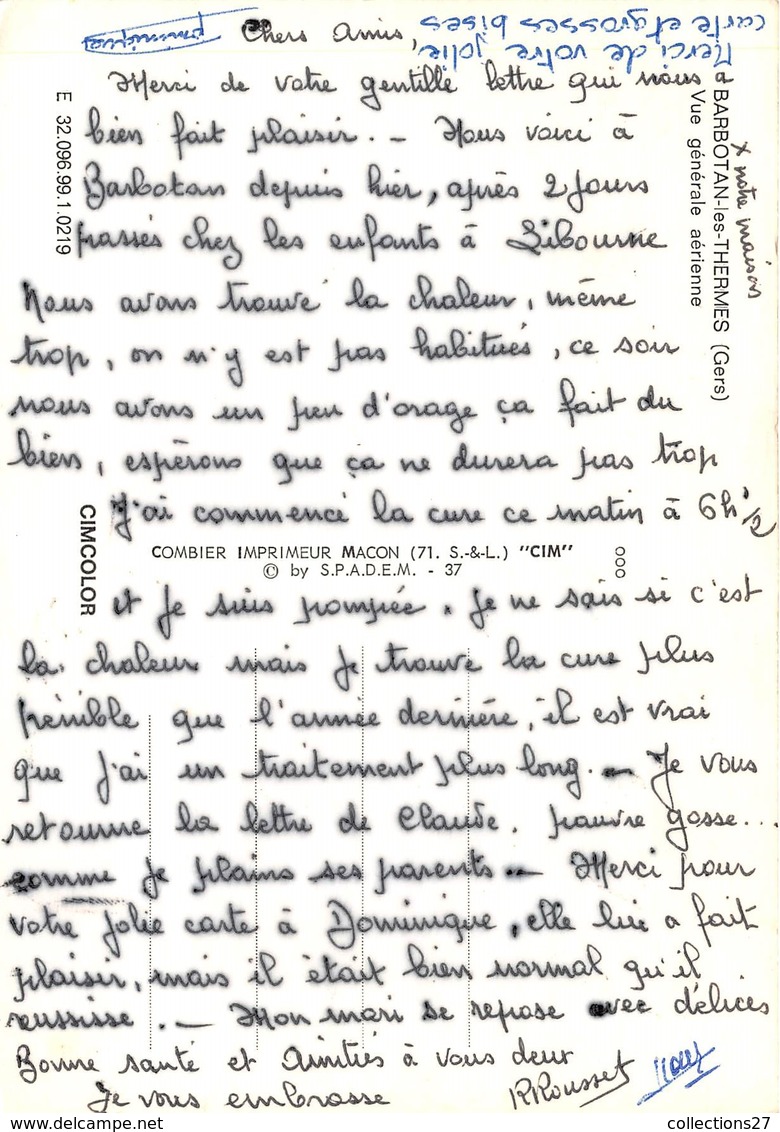 Merci de votre jolie
carte et grosses bises
Dominique
Chers Amis,
Merci de votre gentille lettre qui nous a
bien fait plaisir. _ Nous voici à
Barbotan depuis hier, après 2 jours
passés chez les enfants à Libourne
Nous avons trouvé la chaleur, même
trop, on n'y est pas habitués, ce soir
nous avons un peu d'orage ça fait du
bien, espérons que ça ne durera pas trop
J'ai commencé la cure ce matin à 6h 1/2
COMBIER IMPRIMEUR MACON (71. S.-&-L.) "CIM"
© by S.P.A.D.E.M. - 37
et je suis pompée. Je ne sais si c'est
la chaleur mais je trouve la cure plus
pénible que l'année dernière, il est vrai
que j'ai un traitement plus long. _ Je vous
retourne la lettre de Claude. pauvre gosse...
comme je plains ses parents _ Merci pour
votre jolie carte à Dominique, elle lui a fait
plaisir, mais il était bien normal qu'il
réussisse. _ Mon mari se repose avec délices
Bonne santé et Amitiés à vous deux
Je vous embrasse
RRousset
BARBOTAN-les-THERMES (Gers)
Vue générale aérienne
x notre maison
E 32.096.99.1.0219
CIMCOLOR
000
collections27